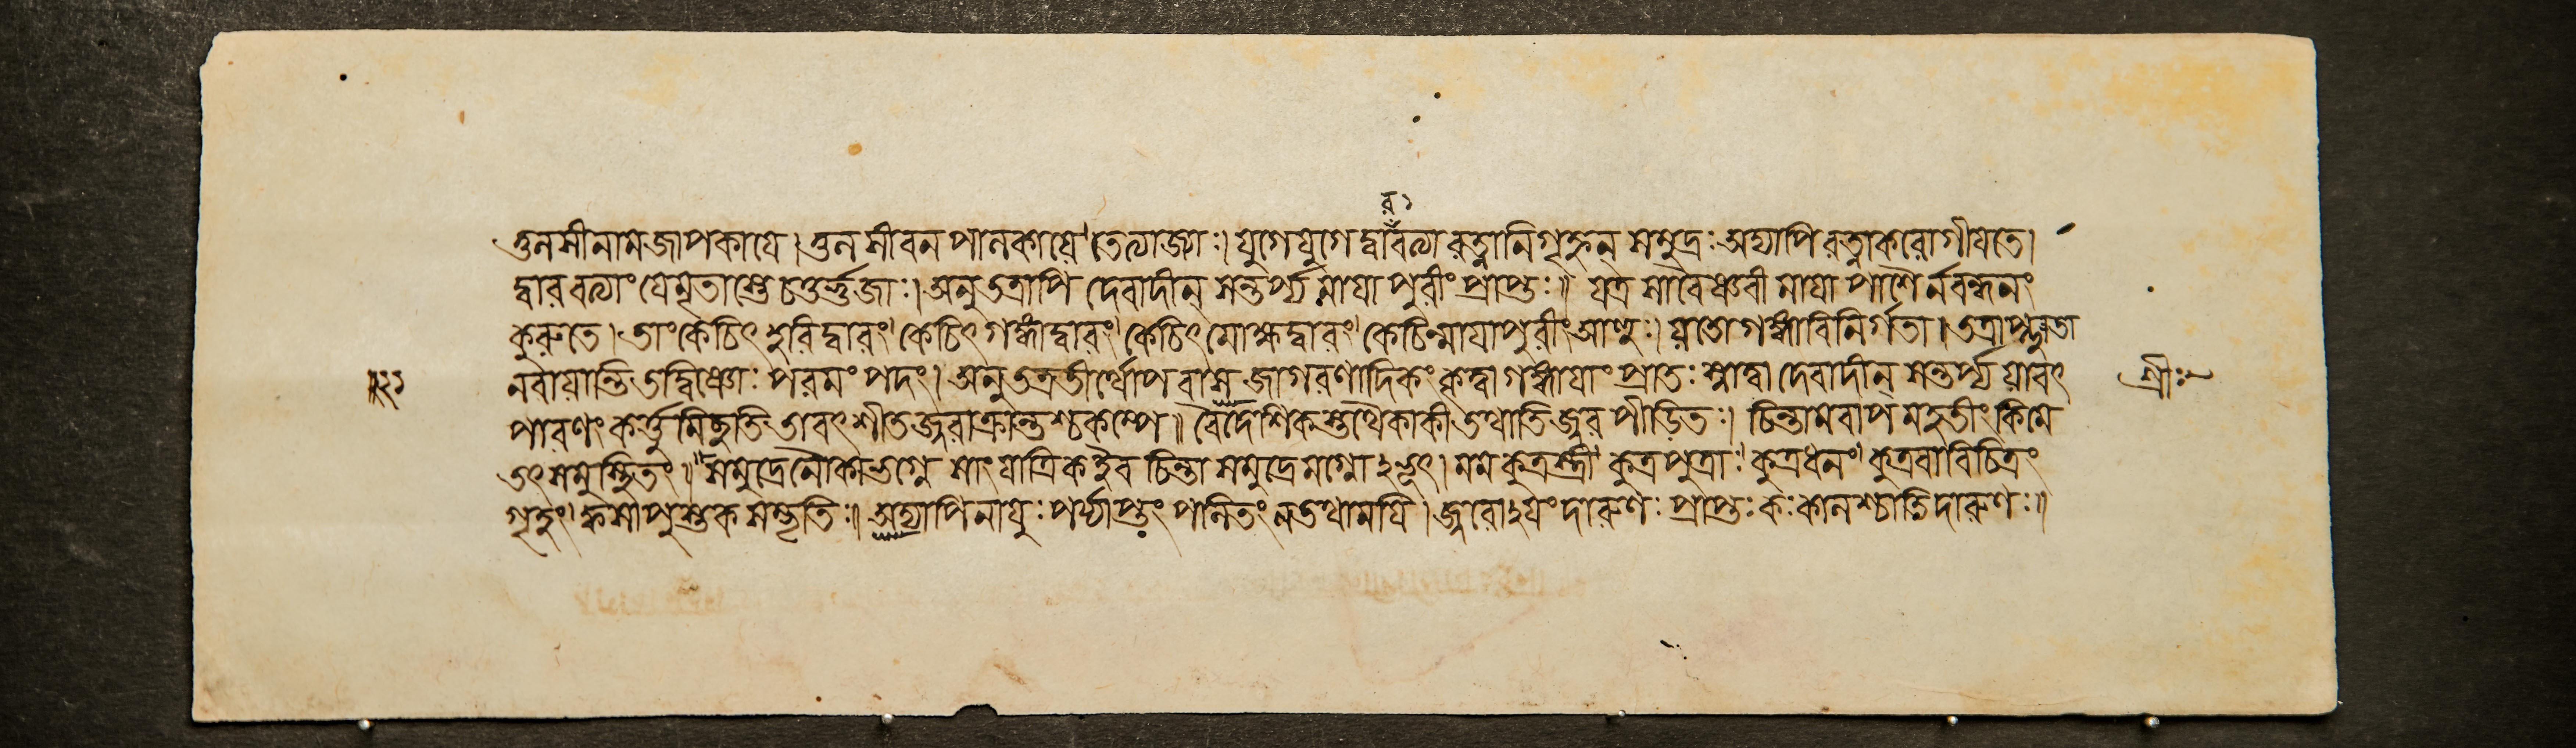 তুলসীনামজাপকাযে। তুলসীবনপালকাযে। তেত্যাজ্যাঃ। যুগেযুগেদ্বারবত্যা রত্নানিগৃহ্নন্ সমুদ্রঃ অদ্যাপি রত্নাকরোগীযতে।
দ্বারবত্যাং যেমৃতাস্তে চতুর্ভুজাঃ। অনু তত্রাপি দেবাদীন্ সন্তর্প্য মাযাপুরীং প্রাপ্তঃ॥ যত্র সাবৈষ্ণবী মাযা পাশৈর্নবন্ধনং
কুরুতে। তাং কেচিৎ হরিদ্বারং। কেচিৎ গঙ্গাদ্বারং। কেচিৎ মোক্ষদ্বারং। কেচিন্মাযাপুরীং আহুঃ। যতো গঙ্গাবিনির্গতা। তত্রাপ্লুতা
নরাযান্তি তদ্বিষ্ণোঃ পরমং পদং। অনু তত্রতীর্থোপবাস জাগরণাদিকং কৃত্বা গঙ্গাযাং প্রাতঃ স্নাত্বা দেবাদীন্ সন্তর্প্য যাবৎ
শ্রীঃ
পারণং কর্ত্তুমিচ্ছতি তাবৎ শীতজ্বরাক্রান্তশ্চকম্পে॥ বৈদেশিকস্তথৈকাকী তথাতিজ্বরপীড়িতঃ। চিন্তামবাপ মহতীং কিমে
তৎ সমুপস্থিতং॥ সমুদ্রে নৌকাভগ্নে সাংযাত্রিক ইব চিন্তাসমুদ্রে মগ্নোঽভূৎ। মম কুত্রস্ত্রী। কুত্রপুত্রাঃ। কুত্রধনং। কুত্রবাবিচিত্রং
গৃহং। ক্বসা পুস্তকসম্ভৃতিঃ॥ অদ্যাপি নাযুঃ পর্য্যাপ্তং পলিতং ন তথামযি। জ্বরোঽযং দারুণঃ প্রাপ্তঃ কঃ কালশ্চাতিদারুণঃ॥